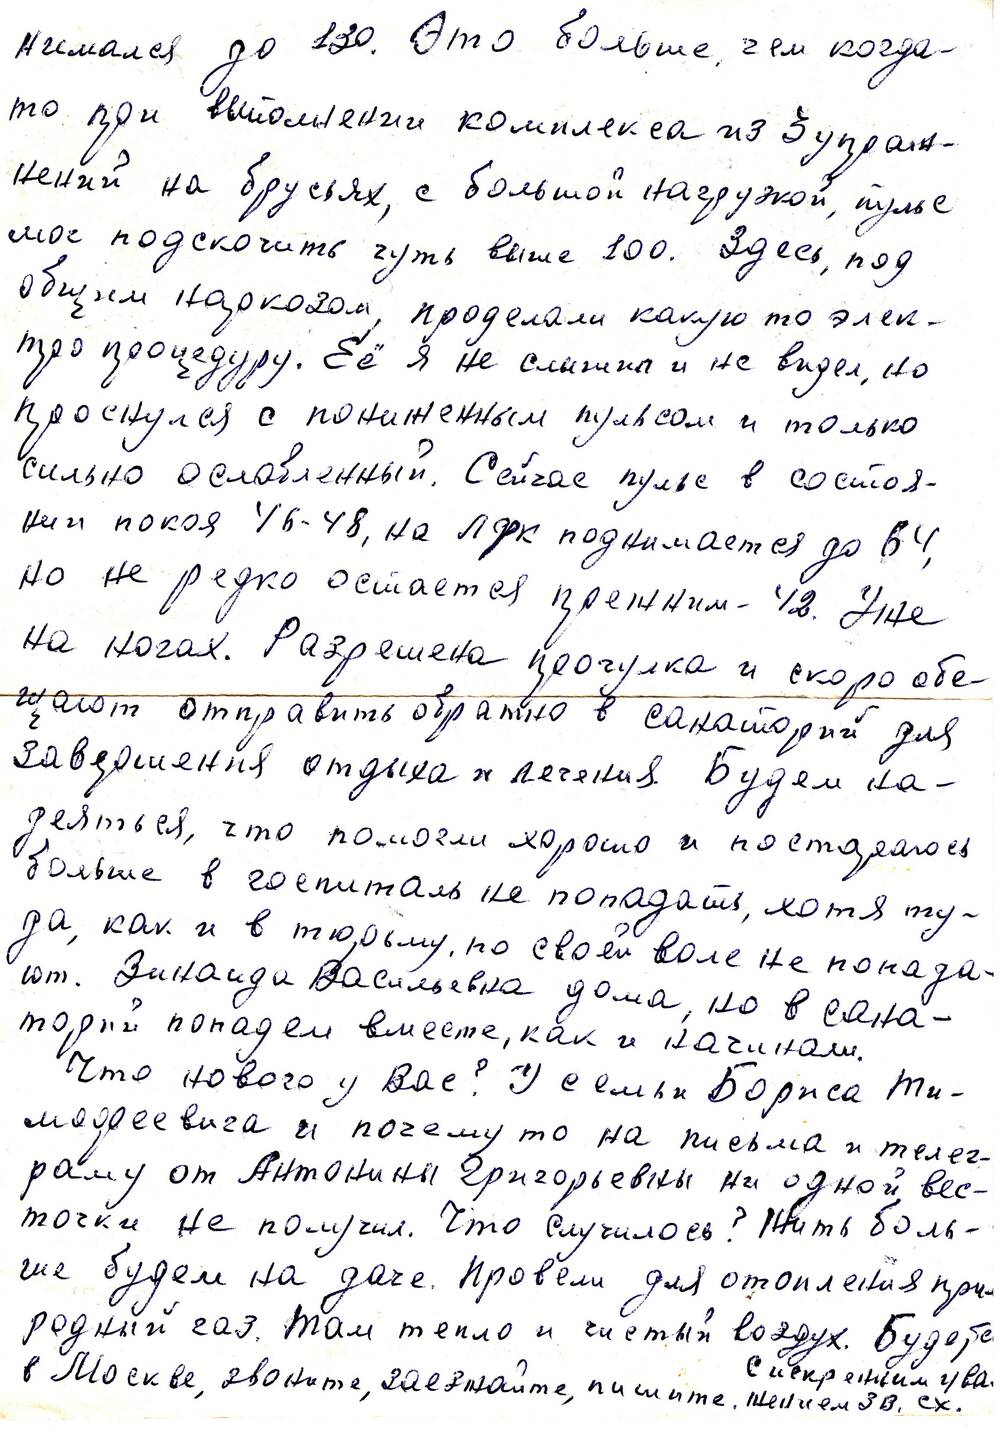 нимался до 130. Это больше, чем когда-
то при выполнении комплекса из 3 упраж-
нений на брусьях, с большой нагрузкой, пульс
мог подскочить чуть выше 100. Здесь, под
общим наркозом, проделали какую то элек-
тро процедуру. Её я не слышал и не видел, но
проснулся с пониженным пульсом и только
сильно ослабленный. Сейчас пульс в состоя-
нии покоя 46-48, на ЛФК поднимается до 64,
но не редко остается прежним - 42. Уже
на ногах. Разрешена прогулка и скоро обе-
щают отправить обратно в санаторий для
завершения отдыха и лечения. Будем на-
деяться, что помогли хорошо и постараюсь
больше в госпиталь не попадать, хотя ту-
да, как и в тюрьму, по своей воле не попада-
ют. Зинаида Васильевна дома, но в сана-
торий попадем вместе, как и начинали.
Что нового у Вас? У семьи Бориса Ти-
мофеевича и почему то на письма и телег-
раму от Антонины Григорьевны ни одной вес-
точки не получил. Что случилось? Жить боль-
ше будем на даче. Провели для отопления при
родный газ. Там тепло и чистый воздух. Будете
в Москве, звоните, заезжайте, пишите. С искренним ува-
жением ЗВ. СХ.